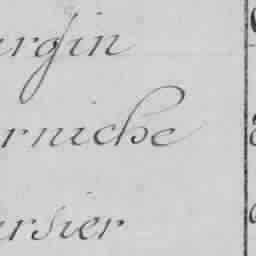 argin
rniche
arsier